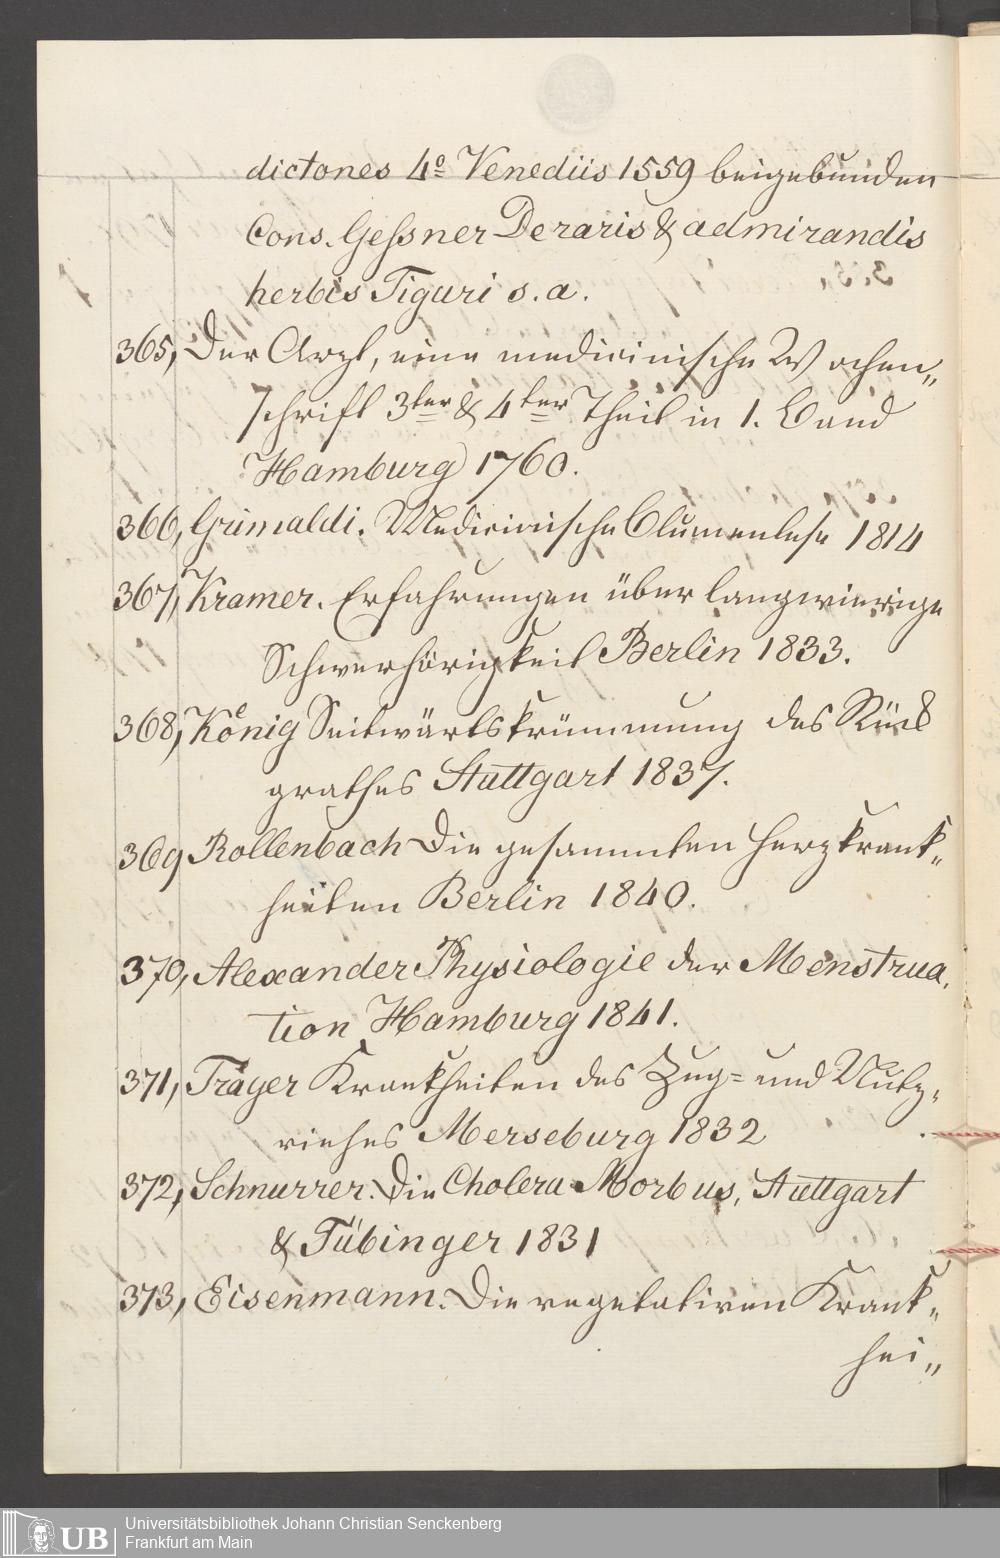 dictones 4º Venediis 1559 beigebunden
Cons. Gessner De raris & admirandis
herbis Tiguri s. a.
365, Der Arzt, eine medicinische Wochen„
schrift 3ter & 4ter Theil in 1. Band
Hamburg 1760.
366, Grimaldi. Medicinische Blumenlese 1814
367, Kramer. Erfahrungen über langwierige
Schwerhörigkeit Berlin 1833.
368, König Seitwärtskrümmung des Rück
grathes Stuttgart 1837.
369 Rollenbach Die gesammten Herzkrank„
heiten Berlin 1840.
370, Alexander Physiologie der Menstrua,
tion Hamburg 1841.
371, Träger Krankheiten des Zug= und Nutz„
viehes Merseburg 1832
372, Schnurrer. Die Cholera Morbus, Stuttgart
& Tübinger 1831
373, Eisenmann. Die vegetativen Krank„
hei„
UB Universitätsbibliothek Johann Christian Senckenberg
Frankfurt am Main